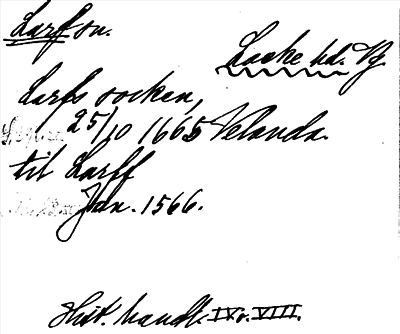 Larf sn.
Laske hd. Vg
Larfs socken,
25/10 1665 Velanda.
til Larff
Jan. 1566.
Hist. handl. IV o. VIII.